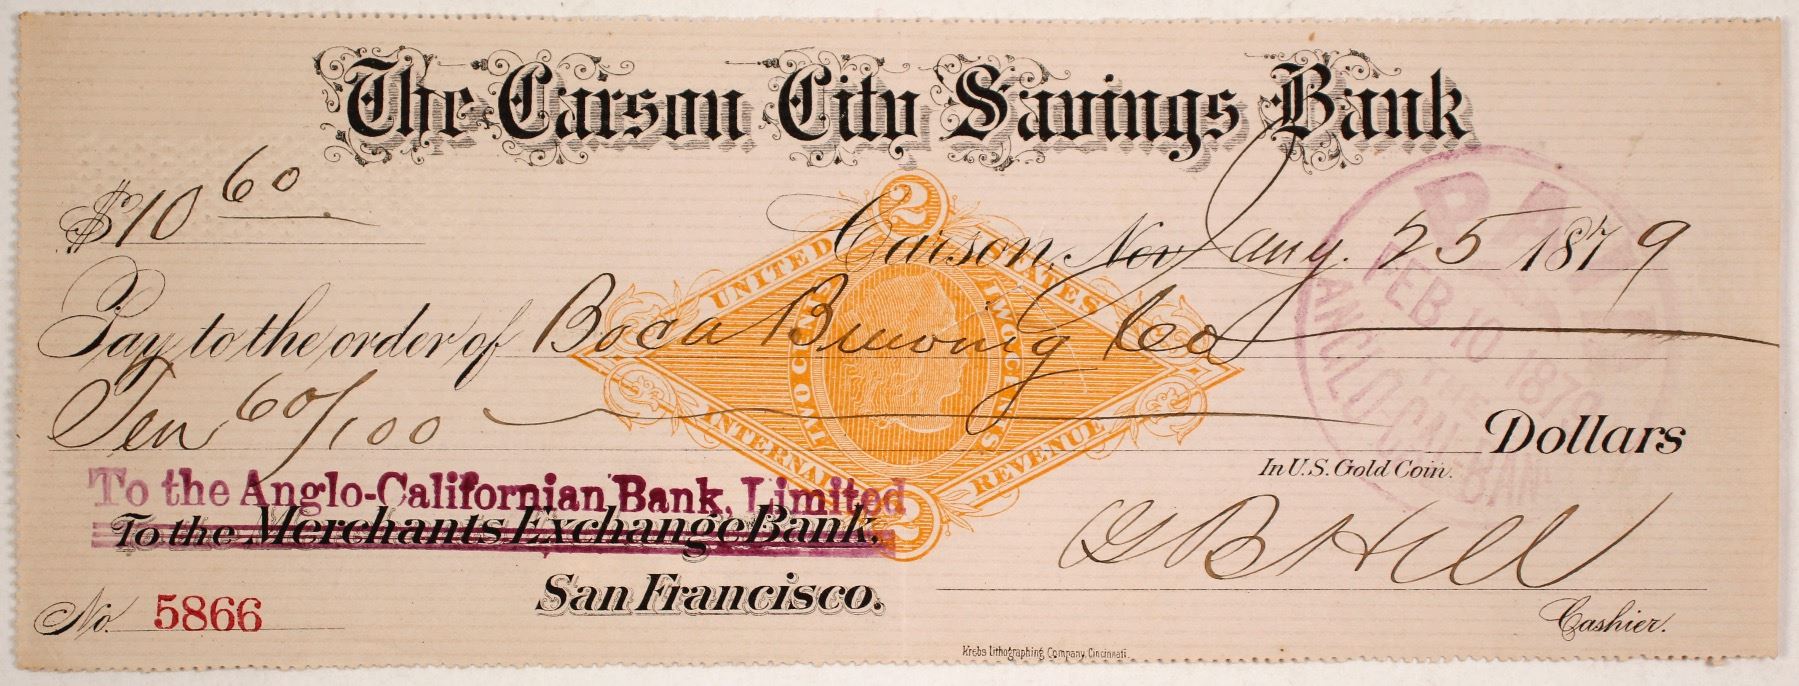 The Carson City Savings Bank
$10 60
Carson, Nov Jany. 25 1879
Pay to the order of Boca Brewing Co
Ten 60/100 Dollars
In U.S. Gold Coin.
To the Anglo-Californian Bank, Limited
To the Merchants Exchange Bank.
San Francisco.
No. 5866
B Hill
Cashier.
Krebs Lithographing Company, Cincinnati.
2
UNITED STATES
TWO CENTS
TWO CENTS
INTERNAL REVENUE
2
PAID
FEB 10 1879
ANGLO-CAL BANK